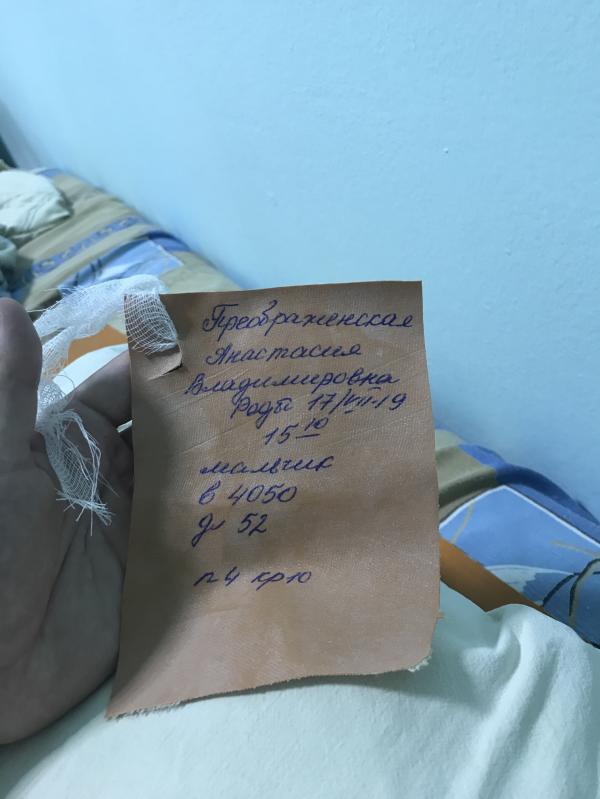 Преображенская
Анастасия
Владимировна
Роды 17/VIII-19
15 10
мальчик
в 4050
дл 52
п 4 кр 10